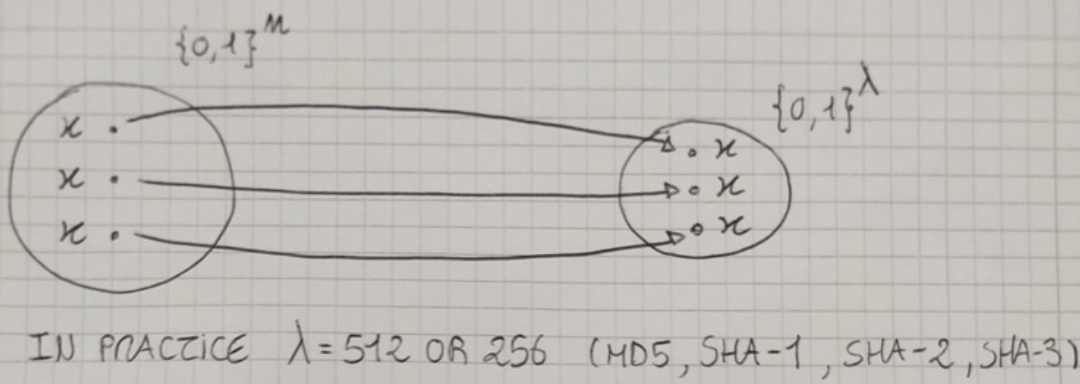 {0,1}^n
{0,1}^λ
x . . x
x . . x
x . . x
IN PRACTICE λ = 512 OR 256 (MD5, SHA-1, SHA-2, SHA-3)